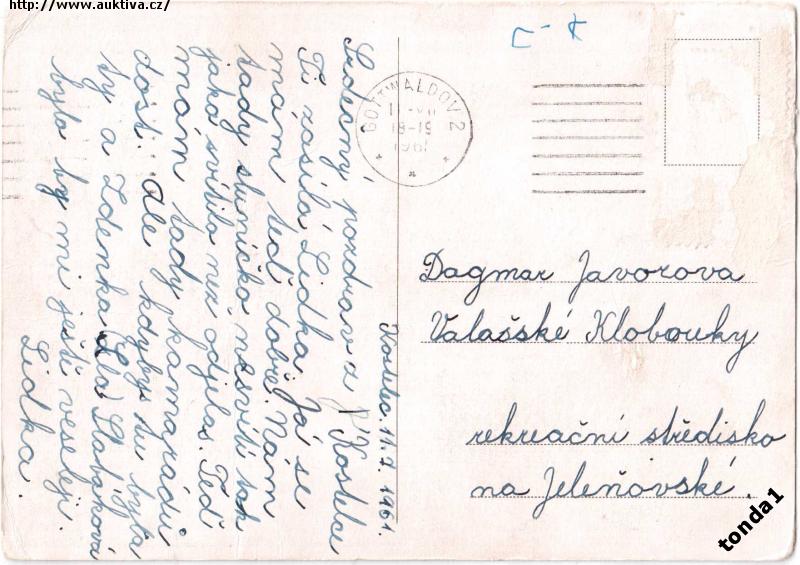 http://www.auktiva.cz/
Kostelec 11.7.1961.
Srdečný pozdrav z Kostelce
Ti zasílá Lidka. Já se
mám teď dobře. Nám
tady sluníčko nesvítí tak
jako svítilo než odjela. Teď
mám tady kamarádů
dost. Ale kdyby tu byla
ty a Zdenka
bylo by mi ještě veseleji.
Lidka.
GOTTWALDOV 2
18-19
1961
Dagmar Javorova
Valašské Klobouky
rekreační středisko
na Jeleňovské.
tonda1